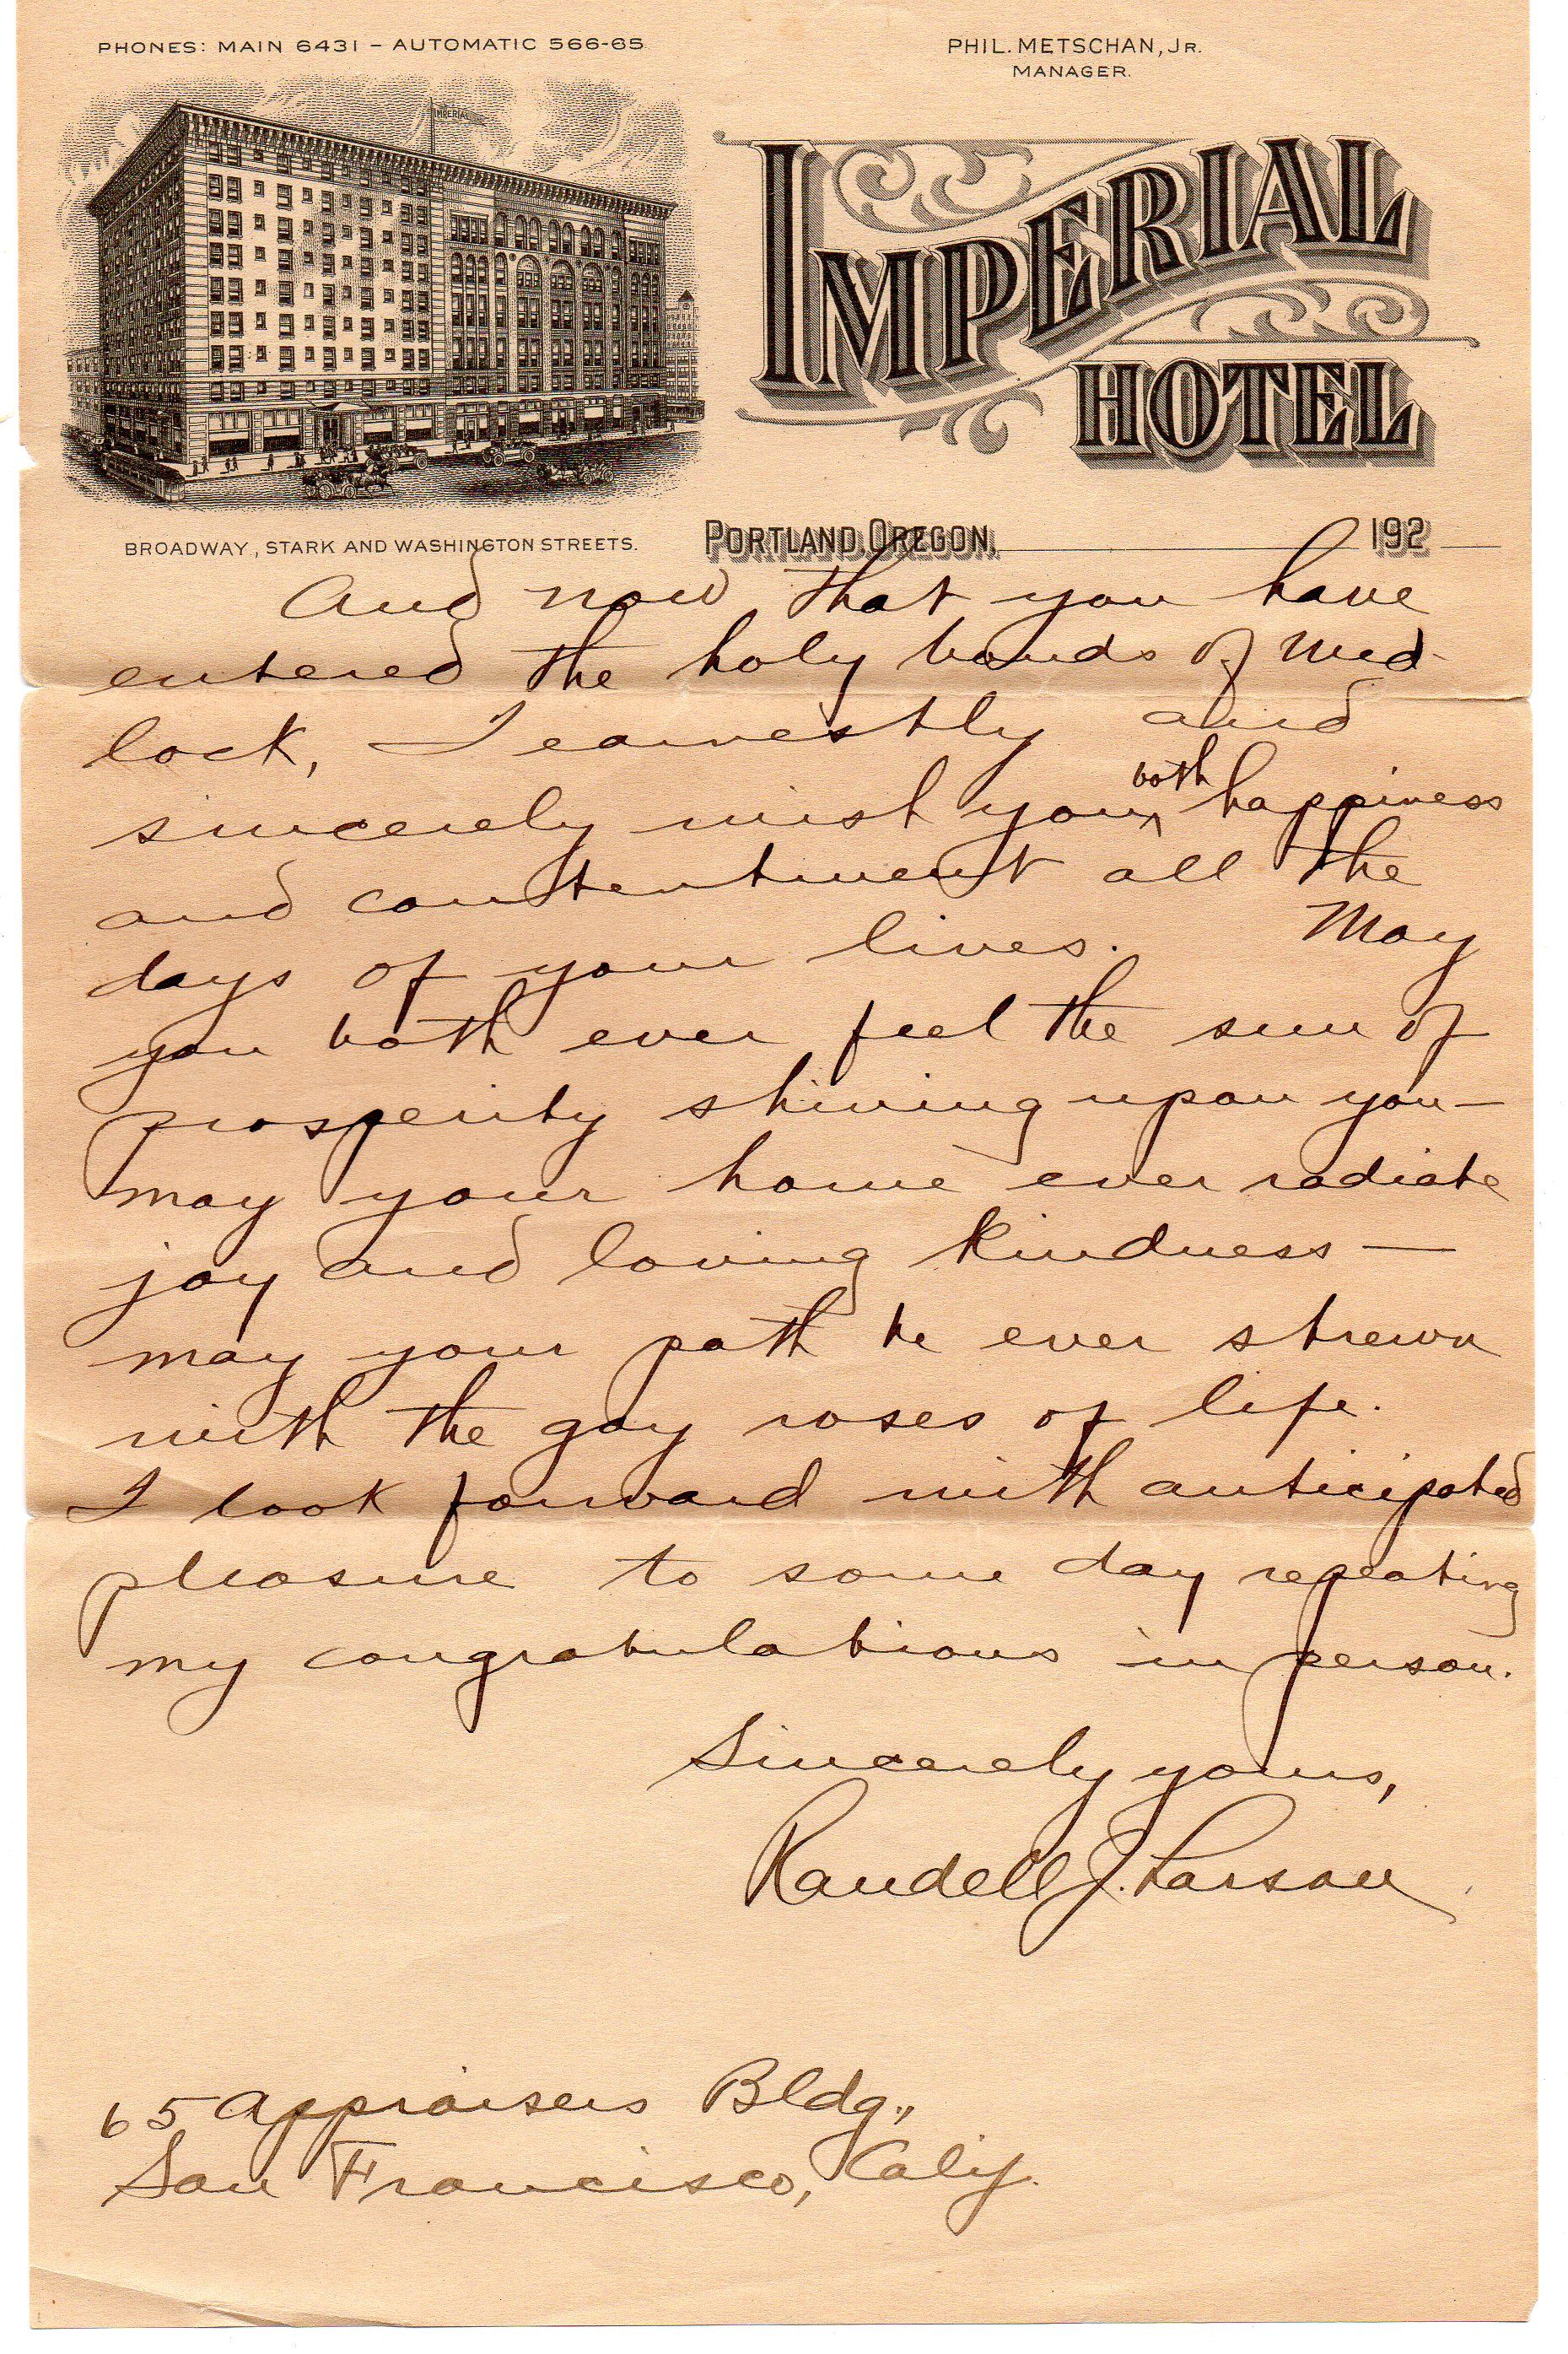 PHONES: MAIN 6431 - AUTOMATIC 566-65
PHIL. METSCHAN, JR.
MANAGER.
IMPERIAL
IMPERIAL
HOTEL
BROADWAY, STARK AND WASHINGTON STREETS.
PORTLAND, OREGON, 192
And now that you have
entered the holy bonds of wed-
lock, I earnestly and
sincerely wish you both happiness
and contentment all the
days of your lives. May
you both ever feel the sun of
prosperity shining upon you—
may your home ever radiate
joy and loving kindness—
may your path be ever strewn
with the gay roses of life.
I look forward with anticipated
pleasure to some day repeating
my congratulations in person.
Sincerely yours,
Randell J. Larson
65 Appraisers Bldg.,
San Francisco, Calif.